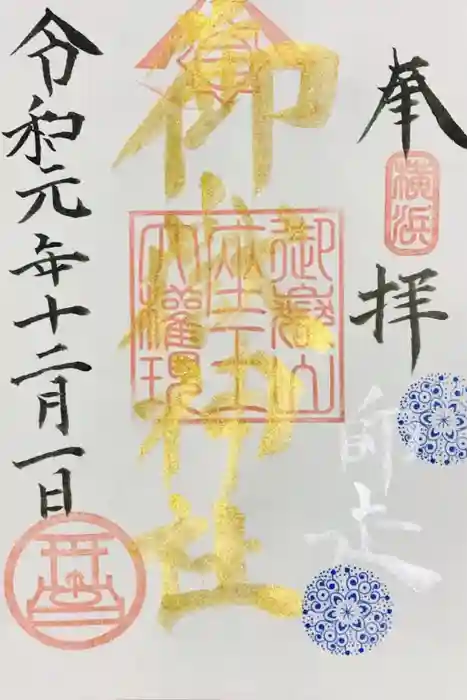 奉拝
横浜
師走
御嶽神社
御嶽山
座王大権現
令和元年十二月一日